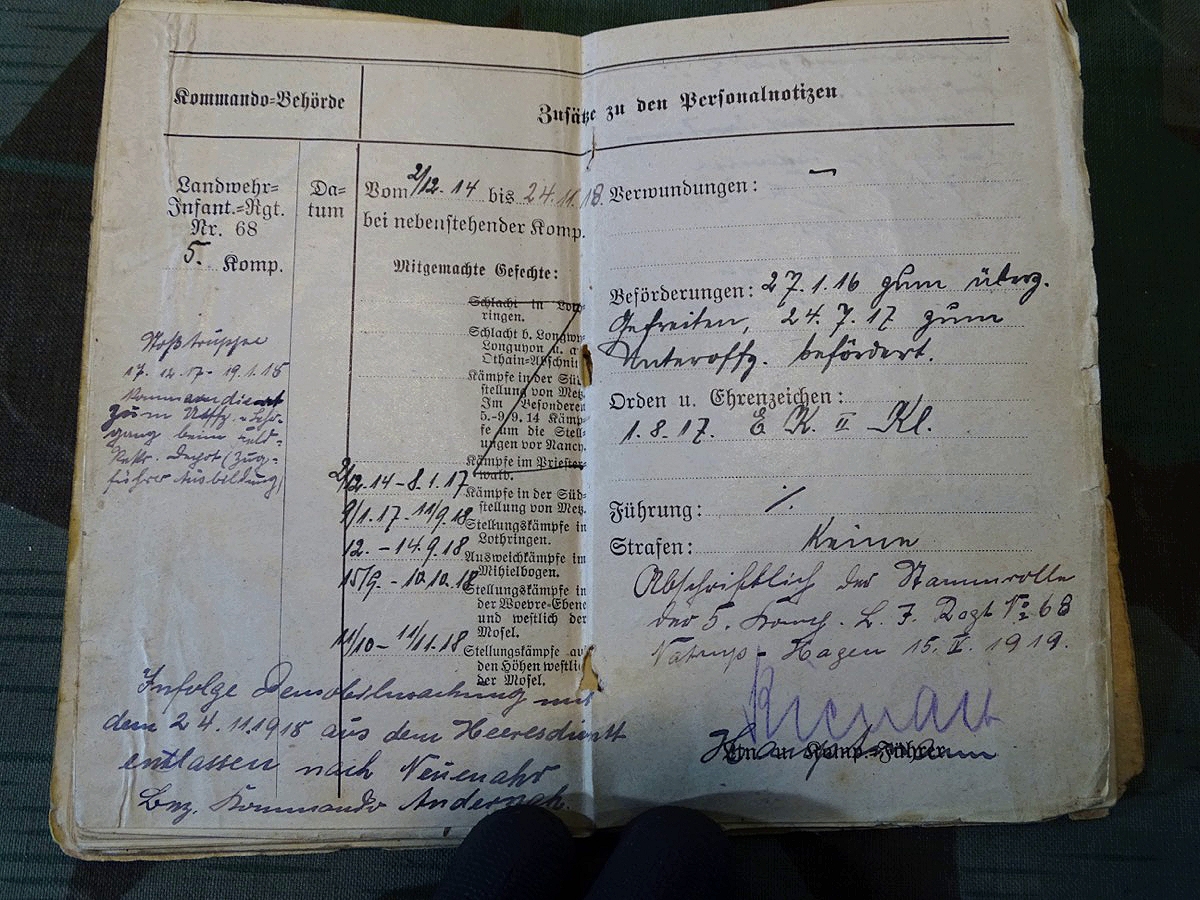 Kommando-Behörde
Zusätze zu den Personalnotizen
Landwehr-
Infant.-Rgt.
Nr. 68
5. Komp.
Da-
tum
Vom 2/12. 14 bis 24.11.18.
bei nebenstehender Komp.
Mitgemachte Gefechte:
Schlacht in Loth-
ringen.
Schlacht b. Longwy-
Longuyon u. a
Othain-Abschnit
Kämpfe in der Süd
stellung von Metz.
Im Besonderen
5.-9.9.14 Kämp-
fe um die Stell-
ungen vor Nancy.
Kämpfe im Priester-
wald.
2/12.14 - 8.1.17 Kämpfe in der Süd-
stellung von Metz.
9/1.17. - 11/9.18 Stellungskämpfe in
Lothringen.
12. - 14.9.18 Ausweichkämpfe im
Mihielbogen.
15/9. - 10.10.18 Stellungskämpfe in
der Woevre-Ebene
und westlich der
Mosel.
11/10 - 11/11.18 Stellungskämpfe auf
den Höhen westlic
der Mosel.
Stoßtruppen
17. 12. 17 - 19.1.18
zum
gang beim Feld-
Rekr. Depot (Zug-
führer Ausbildung)
Infolge Demobilmachung mit
dem 24.11.1918 aus dem Heeresdienst
entlassen nach Neuenahr
Bez. Kommando Andernach.
Verwundungen: —
Beförderungen: 27.1.16 zum überz.
Gefreiten, 24.7.17 zum
Unteroffz. befördert.
Orden u. Ehrenzeichen:
1.8.17. E. K. II Kl.
Führung: ./.
Strafen: Keine
Abschriftlich der Stammrolle
der 5. Komp. L. J. Regt No 68
Hagen 15. V. 1919.
Komp.-Führer